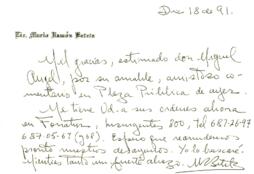 Dic 18 de 91.
Lic. Mario Ramón Beteta
Mil gracias, estimado don Miguel
Angel, por su amable, amistoso co-
mentario en Plaza Pública de ayer.
Me tiene Ud. a sus ordenes ahora
en Fonatur, Insurgentes 800, Tel 687-26-97
687-05-67 (). Espero que reanudemos
pronto nuestros desayunos. Yo lo buscaré
Mientras tanto un fuerte abrazo. MRBeteta